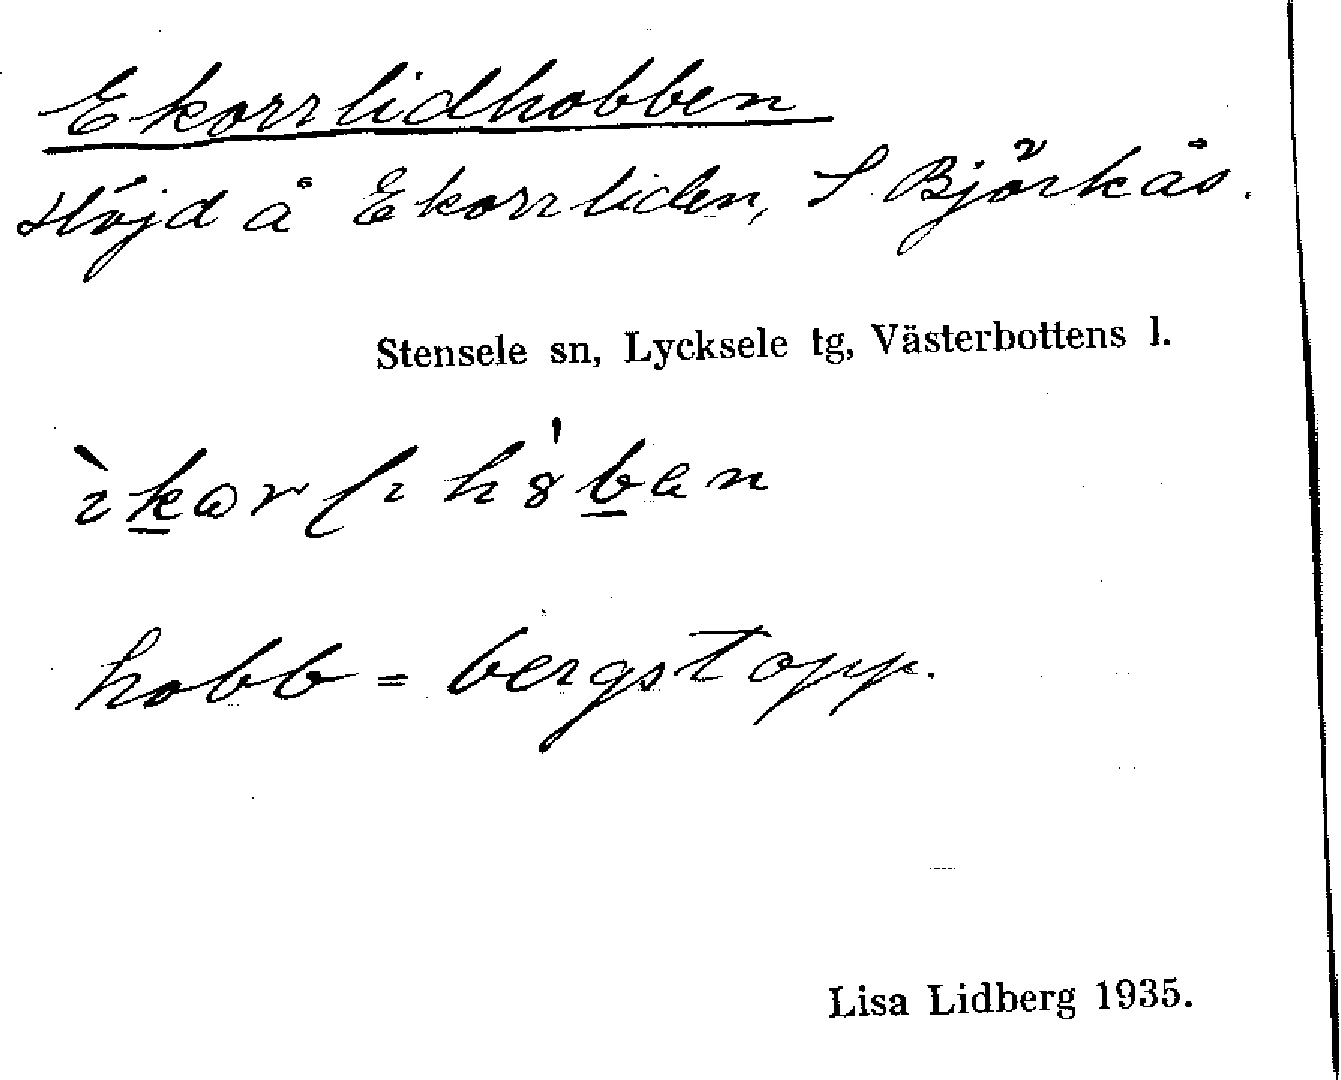 Ekorrlidhobben
Höjd å Ekorrliden, S Björkås.
Stensele sn, Lycksele tg, Västerbottens l.
hobb = bergstopp.
Lisa Lidberg 1935.